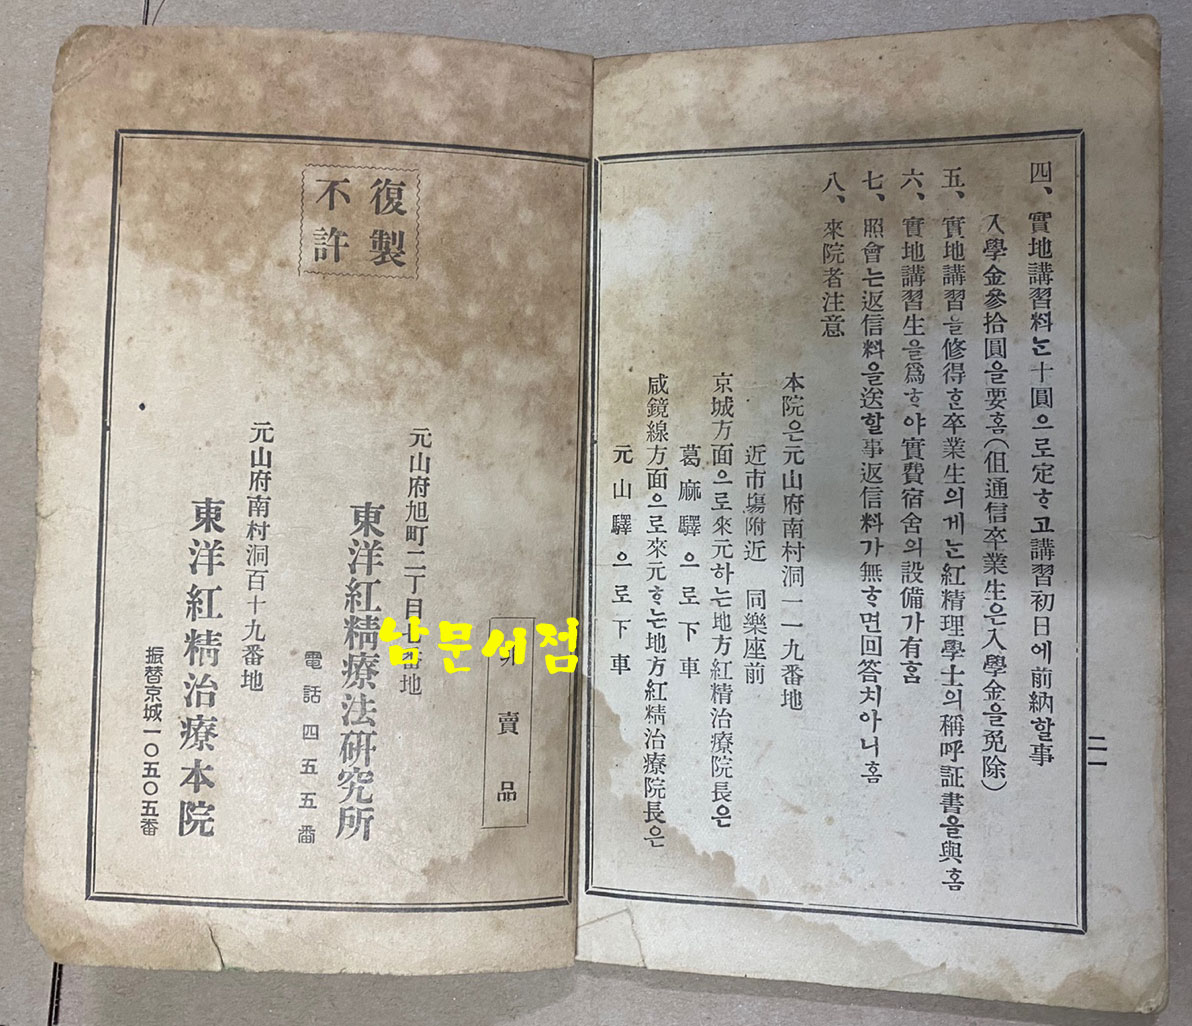 四、實地講習料는十圓으로定ᄒᆞ고講習初日에前納할事
入學金參拾圓을要홈(但通信卒業生은入學金을免除)
五、實地講習을修得ᄒᆞᆫ卒業生의게는紅精理學士의稱呼証書을與홈
六、實地講習生을爲ᄒᆞ야實費宿舍의設備가有홈
七、照會는返信料을送할事返信料가無ᄒᆞ면回答치아니홈
八、來院者注意
本院은元山府南村洞一一九番地
近市場附近 同樂座前
京城方面으로來元하는地方紅精治療院長은
葛麻驛으로下車
咸鏡線方面으로來元ᄒᆞ는地方紅精治療院長은
元山驛으로下車
二一
賣品
復製
不許
元山府旭町二丁目七番地
東洋紅精療法硏究所
電話四五五番
元山府南村洞百十九番地
東洋紅精治療本院
振替京城一〇五〇五番
남문서점